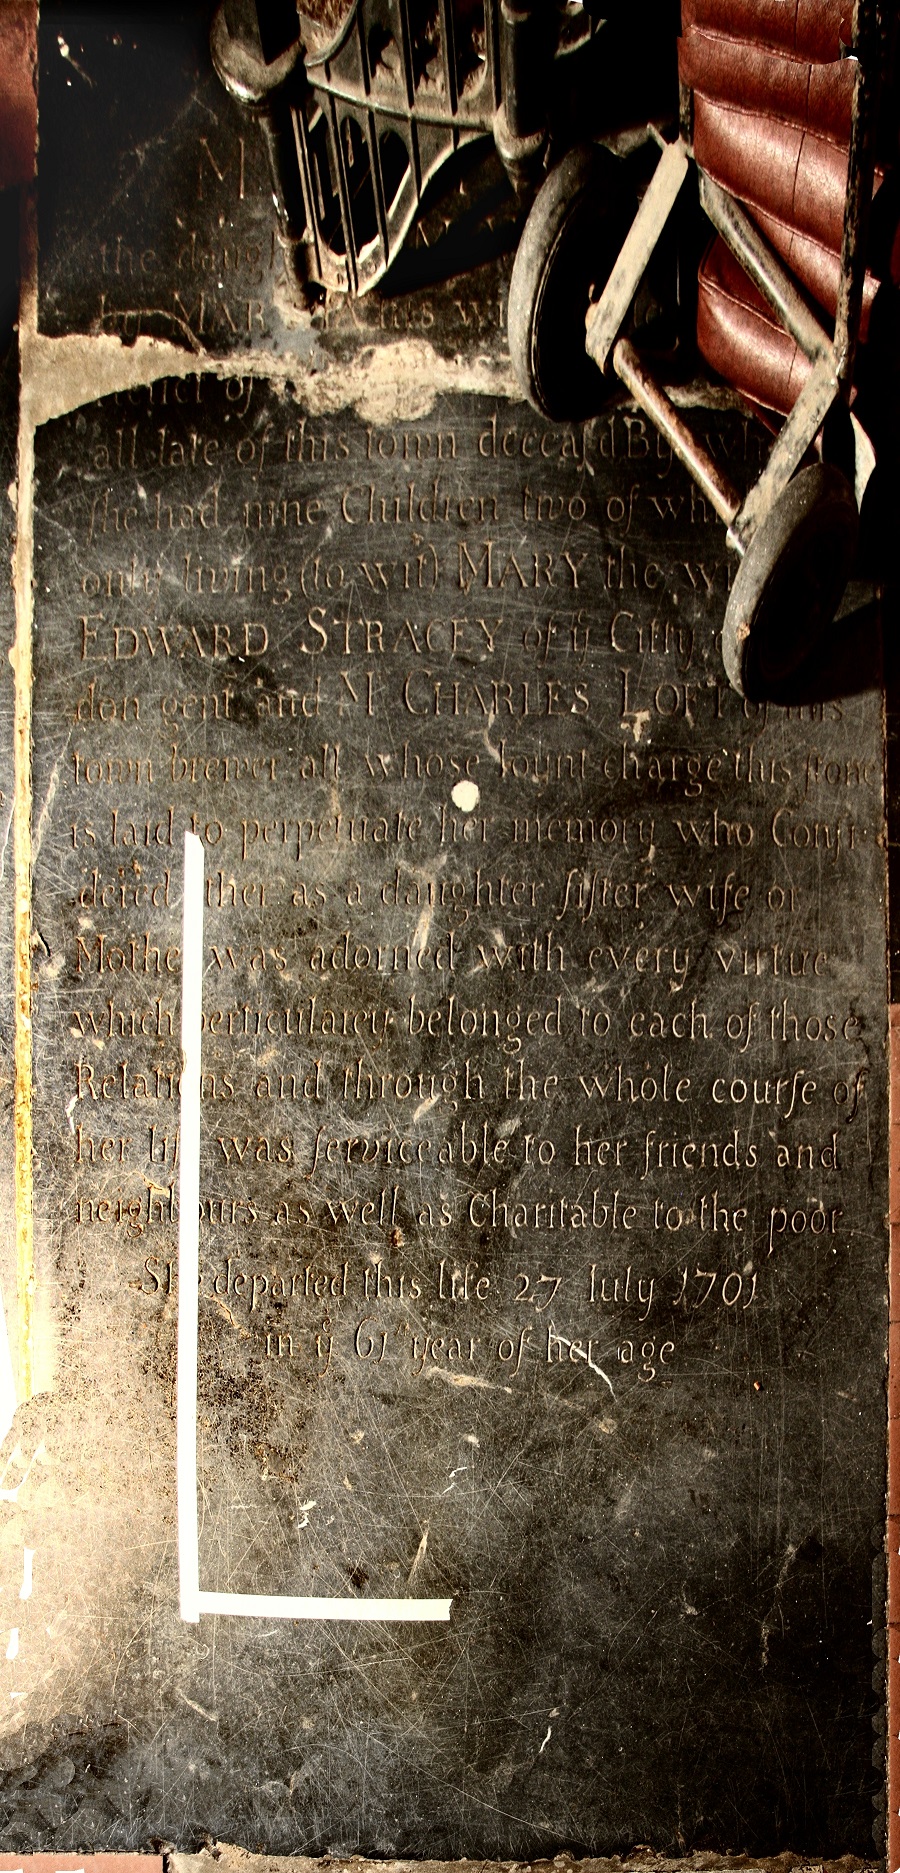 M
the daugh
by MAR
Relict of
all late of this town deceasd By wh
she had nine Children two of wh
only living (to wit) MARY the wi
EDWARD STRACEY of ÿ Citty
don gent and Mr CHARLES LOFT of this
town brewer all whose Iount charge this stone
is laid to perpetuate her memory who Consi
dered ther as a daughter sister wife or
Mothe was adorned with every virtue
which perticularly belonged to each of those
Relations and through the whole course of
her life was serviceable to her friends and
neighbours as well as Charitable to the poor
She departed this life 27 Iuly 1701
in ÿ 61st year of her age